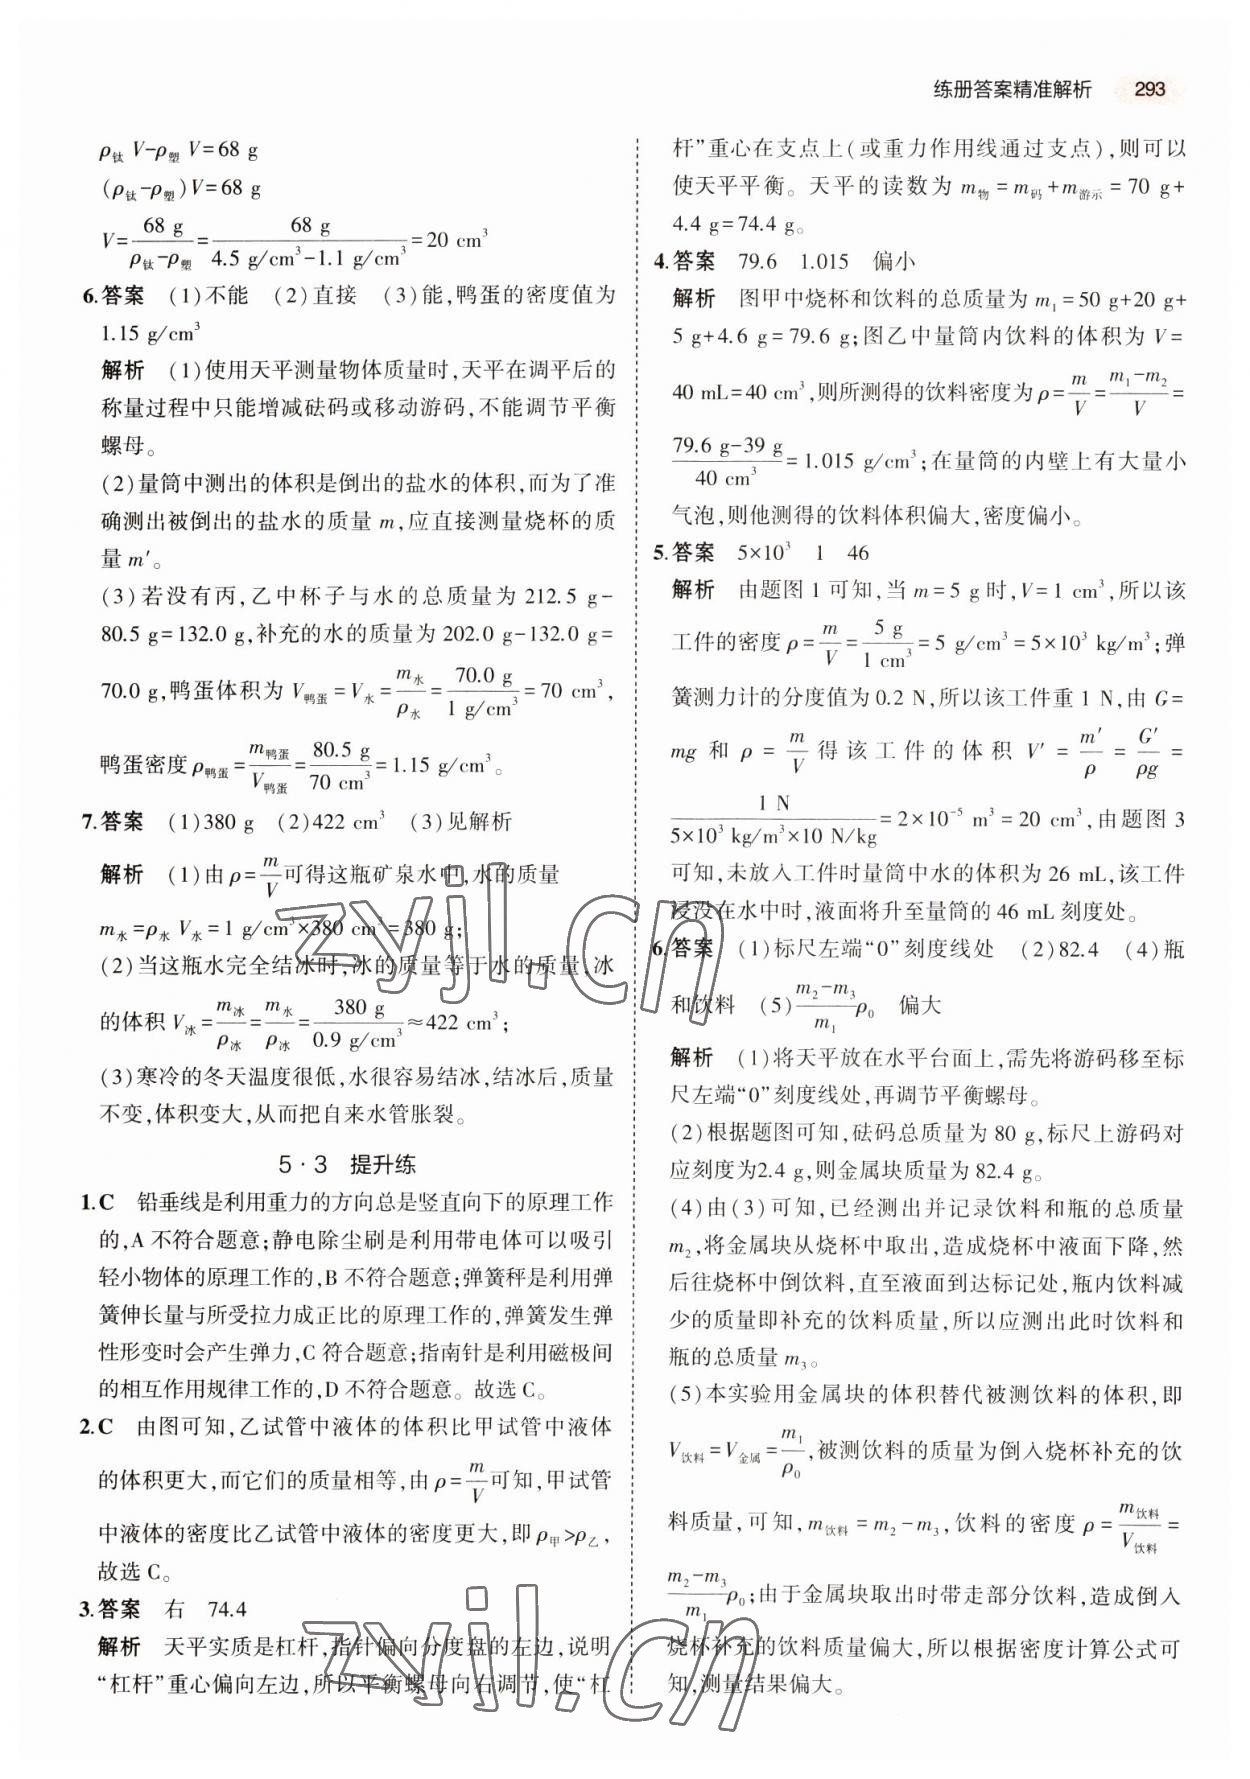 练册答案精准解析 293
ρ钛 V-ρ塑 V=68 g
(ρ钛-ρ塑)V=68 g
V=68 g/(ρ钛-ρ塑)=68 g/(4.5 g/cm³-1.1 g/cm³)=20 cm³
6.答案 (1)不能 (2)直接 (3)能,鸭蛋的密度值为
1.15 g/cm³
解析 (1)使用天平测量物体质量时,天平在调平后的
称量过程中只能增减砝码或移动游码,不能调节平衡
螺母。
(2)量筒中测出的体积是倒出的盐水的体积,而为了准
确测出被倒出的盐水的质量 m,应直接测量烧杯的质
量 m′。
(3)若没有丙,乙中杯子与水的总质量为 212.5 g-
80.5 g=132.0 g,补充的水的质量为 202.0 g-132.0 g=
70.0 g,鸭蛋体积为 V鸭蛋=V水=m水/ρ水=70.0 g/(1 g/cm³)=70 cm³,
鸭蛋密度ρ鸭蛋=m鸭蛋/V鸭蛋=80.5 g/70 cm³=1.15 g/cm³。
7.答案 (1)380 g (2)422 cm³ (3)见解析
解析 (1)由ρ=m/V可得这瓶矿泉水中,水的质量
m水=ρ水 V水=1 g/cm³×380 cm³=380 g;
(2)当这瓶水完全结冰时,冰的质量等于水的质量,冰
的体积 V冰=m冰/ρ冰=m水/ρ冰=380 g/(0.9 g/cm³)≈422 cm³;
(3)寒冷的冬天温度很低,水很容易结冰,结冰后,质量
不变,体积变大,从而把自来水管胀裂。
5·3 提升练
1.C 铅垂线是利用重力的方向总是竖直向下的原理工作
的,A 不符合题意;静电除尘刷是利用带电体可以吸引
轻小物体的原理工作的,B 不符合题意;弹簧秤是利用弹
簧伸长量与所受拉力成正比的原理工作的,弹簧发生弹
性形变时会产生弹力,C 符合题意;指南针是利用磁极间
的相互作用规律工作的,D 不符合题意。故选 C。
2.C 由图可知,乙试管中液体的体积比甲试管中液体
的体积更大,而它们的质量相等,由 ρ=m/V可知,甲试管
中液体的密度比乙试管中液体的密度更大,即 ρ甲>ρ乙,
故选 C。
3.答案 右 74.4
解析 天平实质是杠杆,指针偏向分度盘的左边,说明
“杠杆”重心偏向左边,所以平衡螺母向右调节,使“杠
杆”重心在支点上(或重力作用线通过支点),则可以
使天平平衡。天平的读数为 m物=m码+m游示=70 g+
4.4 g=74.4 g。
4.答案 79.6 1.015 偏小
解析 图甲中烧杯和饮料的总质量为 m₁=50 g+20 g+
5 g+4.6 g=79.6 g;图乙中量筒内饮料的体积为 V=
40 mL=40 cm³,则所测得的饮料密度为 ρ=m/V=(m₁-m₂)/V=
(79.6 g-39 g)/40 cm³=1.015 g/cm³;在量筒的内壁上有大量小
气泡,则他测得的饮料体积偏大,密度偏小。
5.答案 5×10³ 1 46
解析 由题图 1 可知,当 m=5 g 时,V=1 cm³,所以该
工件的密度 ρ=m/V=5 g/1 cm³=5 g/cm³=5×10³ kg/m³;弹
簧测力计的分度值为 0.2 N,所以该工件重 1 N,由 G=
mg 和 ρ=m/V 得该工件的体积 V′=m′/ρ=G′/ρg=
1 N/(5×10³ kg/m³×10 N/kg)=2×10⁻⁵ m³=20 cm³,由题图 3
可知,未放入工件时量筒中水的体积为 26 mL,该工件
浸没在水中时,液面将升至量筒的 46 mL 刻度处。
6.答案 (1)标尺左端“0”刻度线处 (2)82.4 (4)瓶
和饮料 (5)(m₂-m₃)/m₁ρ₀ 偏大
解析 (1)将天平放在水平台面上,需先将游码移至标
尺左端“0”刻度线处,再调节平衡螺母。
(2)根据题图可知,砝码总质量为 80 g,标尺上游码对
应刻度为2.4 g,则金属块质量为 82.4 g。
(4)由(3)可知,已经测出并记录饮料和瓶的总质量
m₂,将金属块从烧杯中取出,造成烧杯中液面下降,然
后往烧杯中倒饮料,直至液面到达标记处,瓶内饮料减
少的质量即补充的饮料质量,所以应测出此时饮料和
瓶的总质量 m₃。
(5)本实验用金属块的体积替代被测饮料的体积,即
V饮料=V金属=m₁/ρ₀,被测饮料的质量为倒入烧杯补充的饮
料质量,可知,m饮料=m₂-m₃,饮料的密度 ρ=m饮料/V饮料=
(m₂-m₃)/m₁ρ₀;由于金属块取出时带走部分饮料,造成倒入
烧杯补充的饮料质量偏大,所以根据密度计算公式可
知,测量结果偏大。
zyjl.cn
zyjl.cn